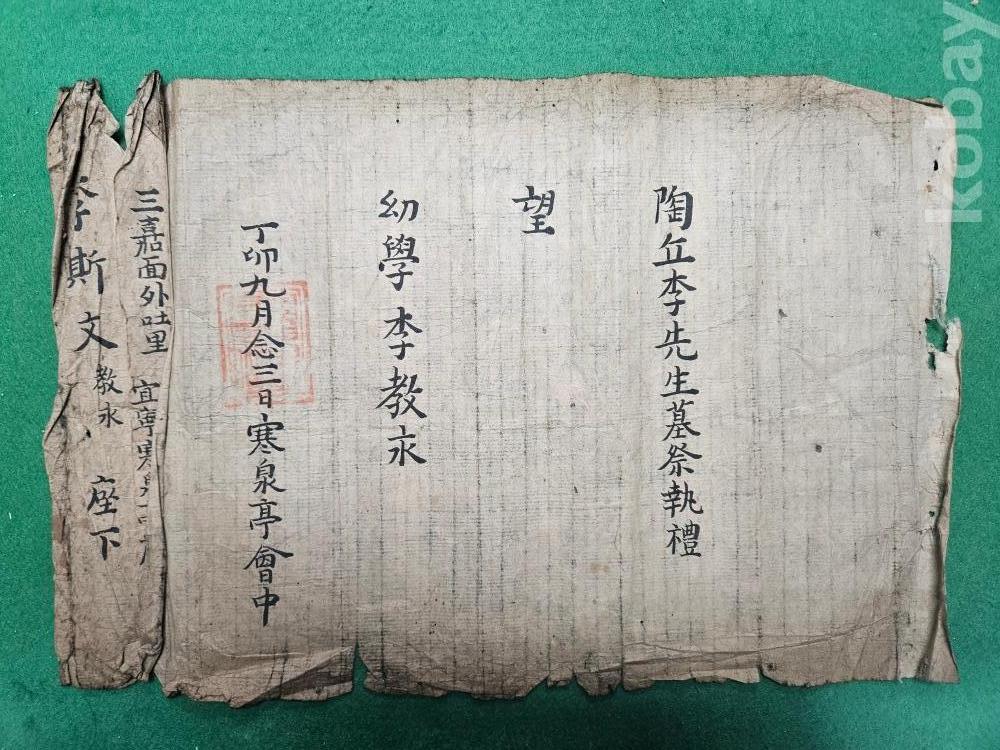 陶丘李先生墓祭執禮
望
幼學李教永
丁卯九月念三日寒泉亭會中
三嘉面外吐里 宜寧寒泉
李斯文教永 座下
kobay